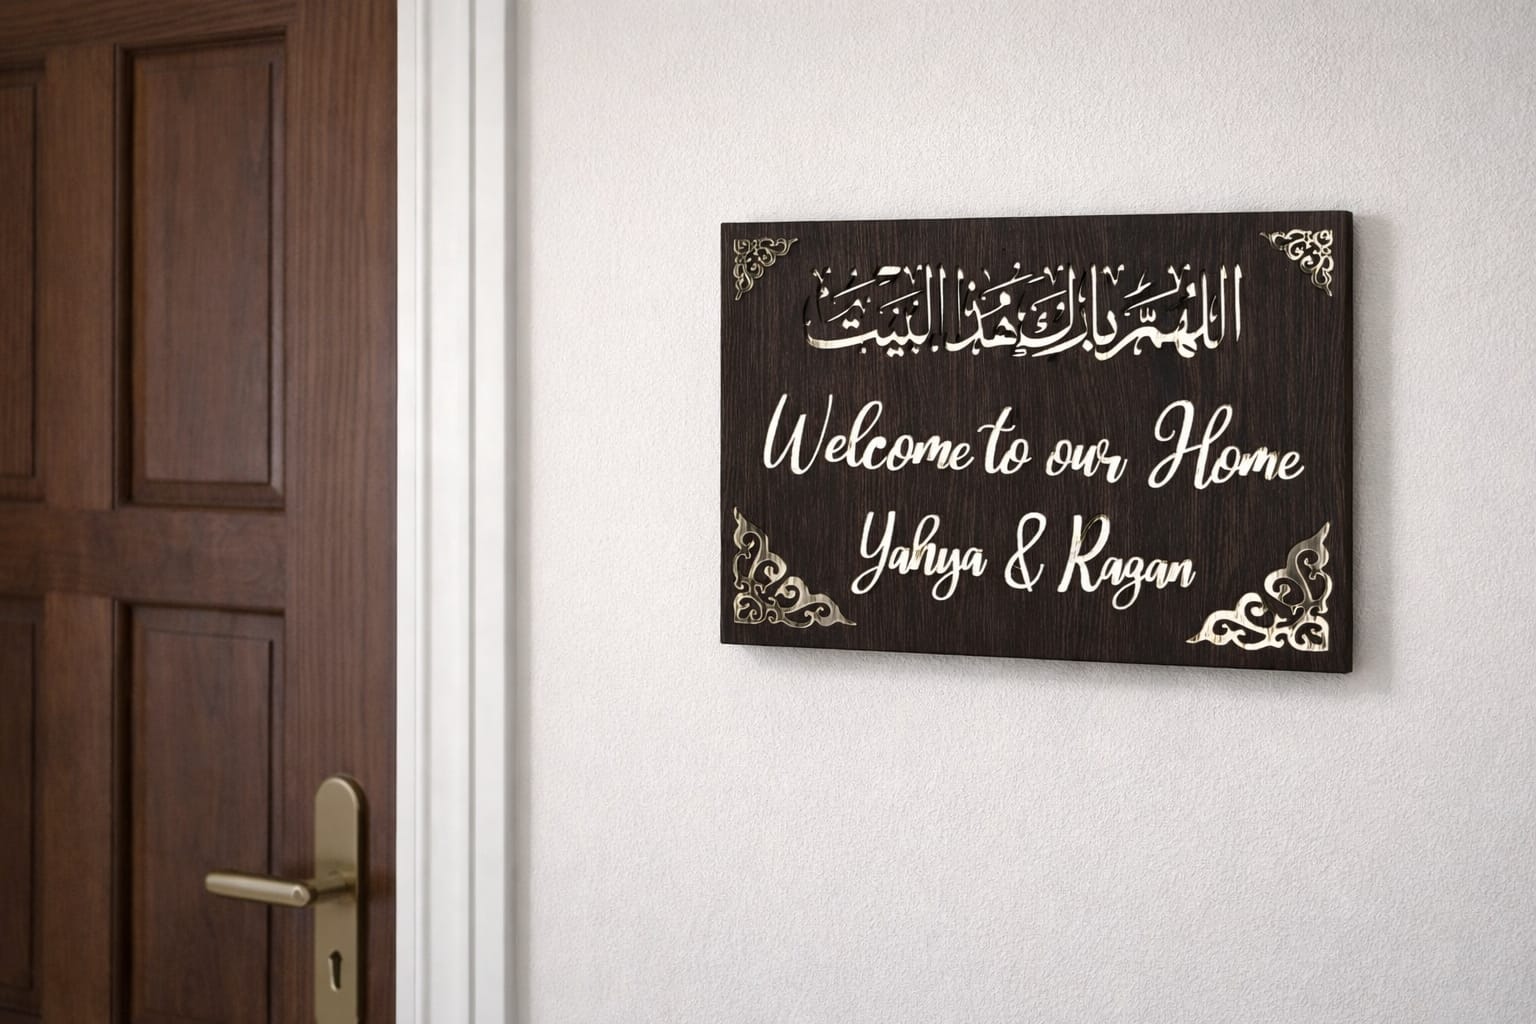 اللهم بارك هذا البيت
Welcome to our Home
Yahya & Ragan